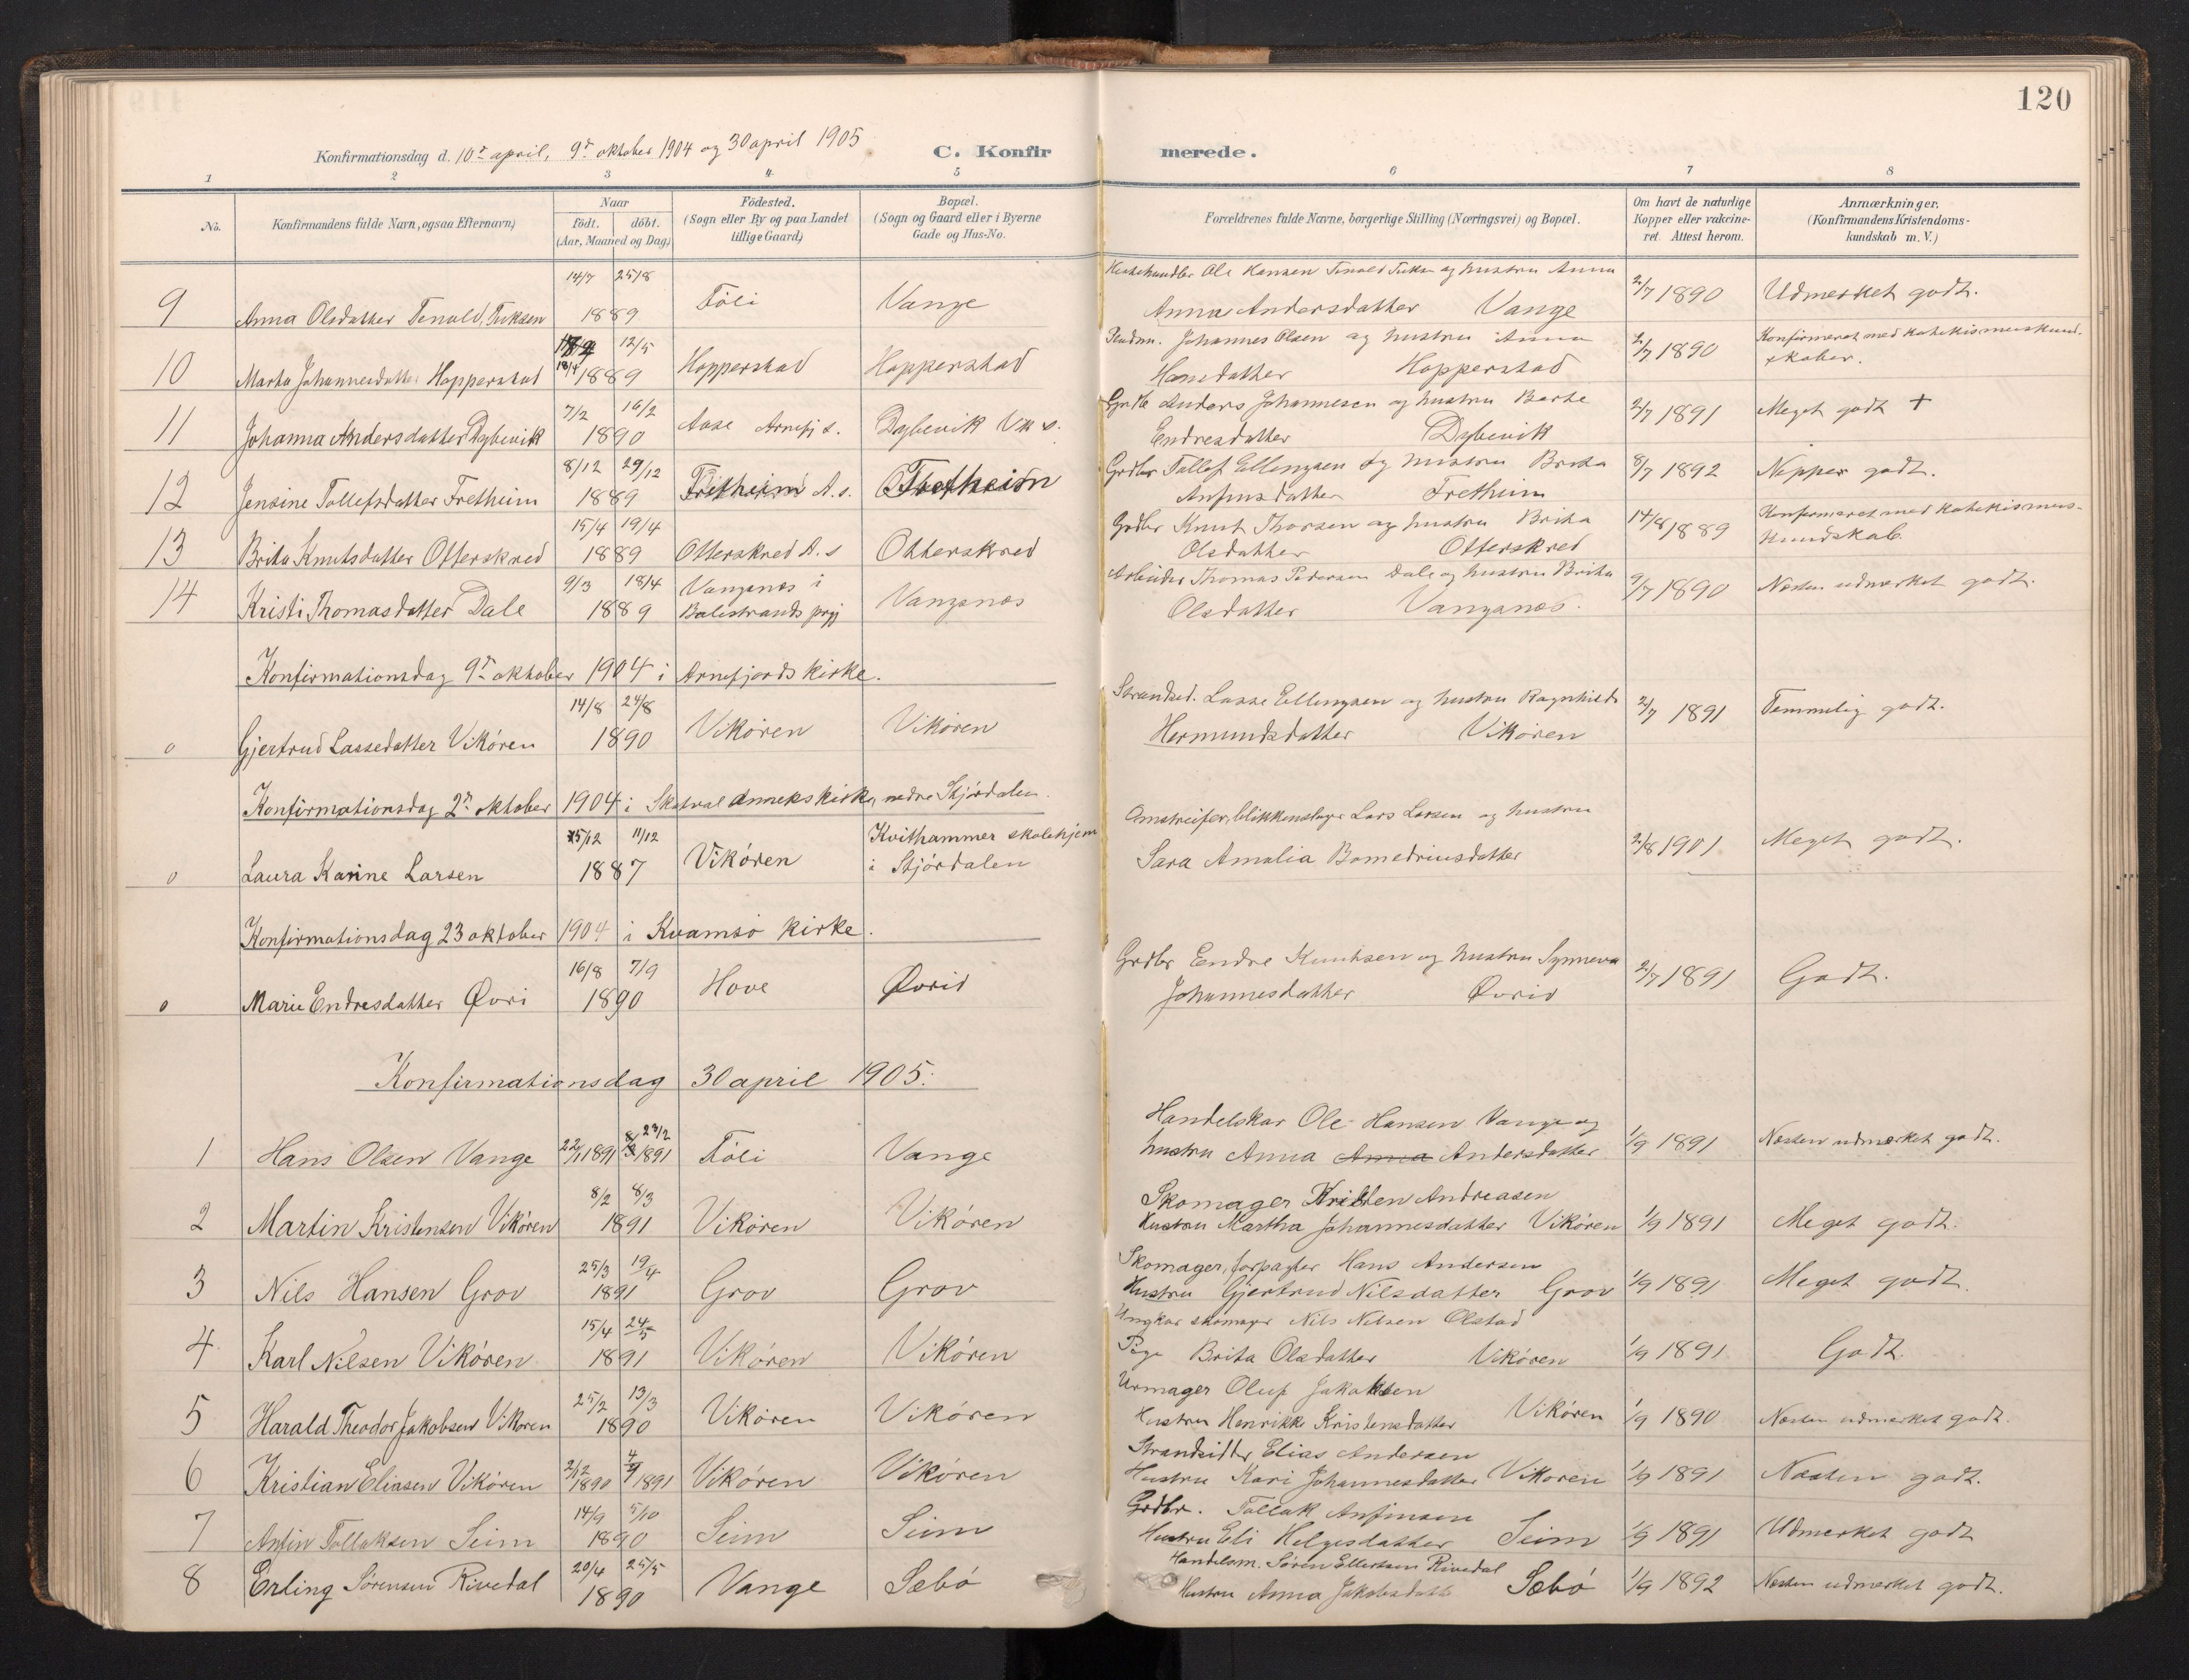 120
Konfirmationsdag d. 10de april, 9de oktober 1904 og 30 april 1905
C. Konfirmerede.
1 2 3 4 5 6 7 8
No.
Konfirmandens fulde Navn, ogsaa Efternavn)
Naar
födt. döbt.
(Aar, Maaned og Dag)
Födested.
(Sogn eller By og paa Landet
tillige Gaard)
Bopæl.
(Sogn og Gaard eller i Byerne
Gade og Hus-No.
Forældrenes fulde Navne, borgerlige Stilling (Næringsvei) og Bopæl.
Om havt de naturlige
Kopper eller vakcine-
ret. Attest herom.
Anmærkninger.
(Konfirmandens Kristendoms-
kundskab m. V.)
14/7 25/8 Hestehandler Ole Hansen Tenold Fiksen og hustru Anna
9 Anna Olsdatter Tenold, Fiksen 1889 Föli Vange Anna Andersdatter Vange 2/7 1890 Udmerket godt.
12/5 Johannes Olsen og hustru Anna Konfirmeret med katekismuskund-
10 Marta Johannesdatter Hopperstad 18/4 1889 Hopperstad Hopperstad Hansdatter Hopperstad 2/7 1890 skaber.
7/2 16/2 Grdbr Anders Johannesen og hustru Barbe
11 Johanna Andersdatter Dybevik 1890 Aase Arnefj s. Dybevik Vik s. Endresdatter Dybevik 2/7 1891 Meget godt +
8/12 29/12 Grdbr Tollef Ellingsen og hustru Brita
12 Jensine Tollefsdatter Fretheim 1889 Fretheim A. s. Fretheim Anfinsdatter Fretheim 8/7 1892 Neppe godt.
15/4 19/4 Grdbr Knut Thorsen og hustru Brita Konfirmeret med katekismus-
13 Brita Knutsdatter Otterskred 1889 Otterskred A. s Otterskred Olsdatter Otterskred 14/8 1889 kundskab.
9/3 18/4 Vangsnes i Arbeider Thomas Pedersen Dale og hustru Brita
14 Kristi Thomasdatter Dale 1889 Balestrands prgj Vangsnes Olsdatter Vangsnes. 9/7 1890 Næsten udmerket godt.
Konfirmationsdag 9de oktober 1904 i Arnefjords kirke.
14/8 24/8 Strandsid. Lasse Ellingsen og hustru Ragnhild
0 Gjertrud Lassedatter Vikören 1890 Vikören Vikören Hermundsdatter Vikören 2/7 1891 Temmelig godt.
Konfirmationsdag 2den oktober 1904 i Skatval annekskirke, nedre Stjördalen.
15/12 11/12 Kvithammer skolehjem Omstreifer, blikkenslager Lars Larsen og hustru
0 Laura Karine Larsen 1887 Vikören i Stjördalen Sara Amalia Bomedriusdatter 2/8 1901 Meget godt.
Konfirmationsdag 23 oktober 1904 i Kvamsö kirke.
16/8 7/9 Grdbr Endre Knutsen og hustru Synneva
0 Marie Endresdatter Övri 1890 Hove Övrid Johannesdatter Övrid 2/7 1891 Godt.
Konfirmationsdag 30 april 1905.
23/2 Handelskar Ole Hansen Vange og
1 Hans Olsen Vange 22/1 1891 1891 Föli Vange hustru Anna Anna Andersdatter 1/9 1891 Næsten udmærket godt.
8/2 8/3 Skomager Kristen Andreasen
2 Martin Kristensen Vikören 1891 Vikören Vikören Hustru Martha Johannesdatter Vikören 1/9 1891 Meget godt.
25/3 19/4 Skomager, forpagter Hans Andersen
3 Nils Hansen Grov 1891 Grov Grov Hustru Gjertrud Nilsdatter Grov 1/9 1891 Meget godt.
15/4 24/5 Ungkar skomager Nils Nilsen Olstad
4 Karl Nilsen Vikören 1891 Vikören Vikören Pige Brita Olsdatter Vikören 1/9 1891 Godt.
25/2 13/3 Urmager Oluf Jakobsen
5 Harald Theodor Jakobsen Vikören 1890 Vikören Vikören Hustru Henrikke Kristensdatter Vikören 1/9 1890 Næsten udmerket godt.
Strandsidder Elias Andersen
6 Kristian Eliasen Vikören 2/12 1890 1891 Vikören Vikören Hustru Kari Johannesdatter Vikören 1/9 1891 Næsten godt.
14/9 5/10 Grdbr. Tollak Anfinsen
7 Anfin Tollaksen Seim 1890 Seim Seim Hustru Eli Helgesdatter Seim 1/9 1891 Udmerket godt
20/4 25/5 Handelsm. Sören Ellertsen Rivedal
8 Erling Sörensen Rivedal 1890 Vange Sæbö Hustru Anna Jakobsdatter Sæbö 1/9 1892 Næsten udmerket godt.